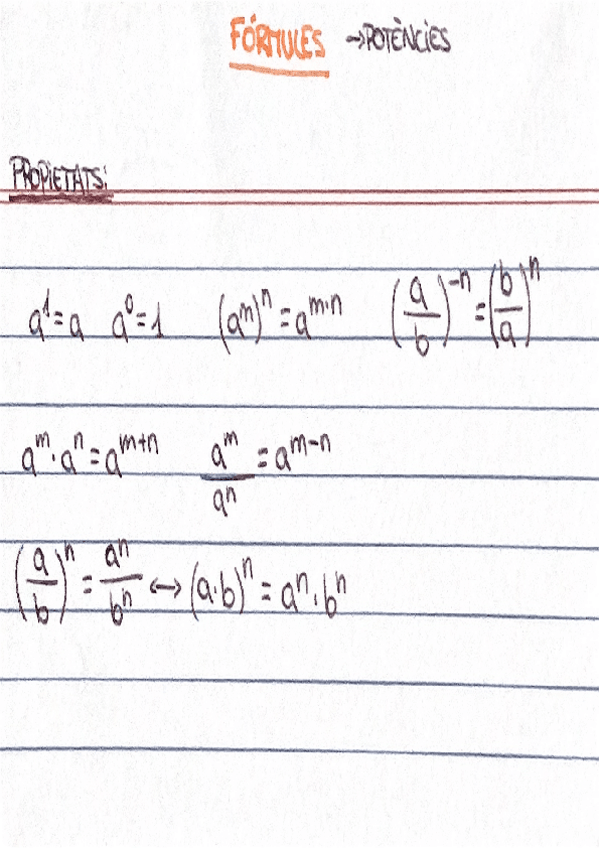 FÓRMULES → POTÈNCIES
PROPIETATS:
a¹=a a⁰=1 (aᵐ)ⁿ = aᵐ·ⁿ (a/b)⁻ⁿ = (b/a)ⁿ
aᵐ·aⁿ=aᵐ⁺ⁿ aᵐ/aⁿ = aᵐ⁻ⁿ
(a/b)ⁿ = aⁿ/bⁿ ↔ (a·b)ⁿ = aⁿ·bⁿ